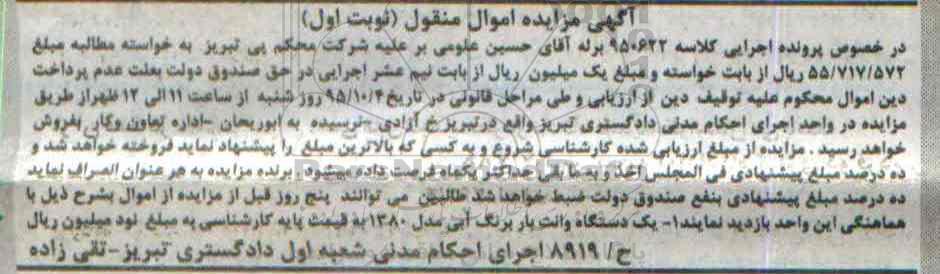 آگهی مزایده اموال منقول (نوبت اول)
در خصوص پرونده اجرایی کلاسه ۹۵۰۶۲۲ برله آقای حسین علومی بر علیه شرکت محکم پی تبریز به خواسته مطالبه مبلغ
۵۵/۷۱۷/۵۷۲ ریال از بابت خواسته و مبلغ یک میلیون ریال از بابت نیم عشر اجرایی در حق صندوق دولت بعلت عدم پرداخت
دین اموال محکوم علیه توقیف دین از ارزیابی و طی مراحل قانونی در تاریخ ۹۵/۱۰/۴ روز شنبه از ساعت ۱۱ الی ۱۲ ظهر از طریق
مزایده در واحد اجرای احکام مدنی دادگستری تبریز واقع در تبریز خ آزادی -نرسیده به ابوریحان -اداره تعاون وکلی بفروش
خواهد رسید . مزایده از مبلغ ارزیابی شده کارشناسی شروع و به کسی که بالاترین مبلغ را پیشنهاد نماید فروخته خواهد شد و
ده درصد مبلغ پیشنهادی فی المجلس اخذ و به ما بقی حداکثر یکماه فرصت داده میشود . برنده مزایده به هر عنوان انصراف نماید
ده درصد مبلغ پیشنهادی بنفع صندوق دولت ضبط خواهد شد طالبین می توانند پنج روز قبل از مزایده از اموال بشرح ذیل با
هماهنگی این واحد بازدید نمایند ۱- یک دستگاه وانت بار برنگ آبی مدل ۱۳۸۰ به قیمت پایه کارشناسی به مبلغ نود میلیون ریال
ح/ ۸۹۱۹ اجرای احکام مدنی شعبه اول دادگستری تبریز-تقی زاده